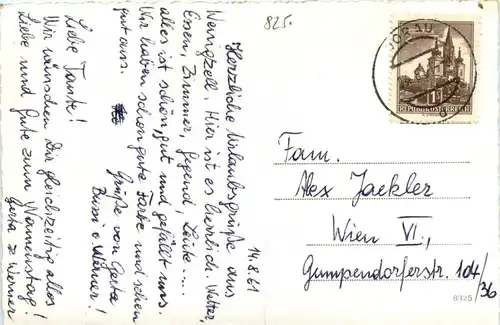 825.
14.8.61
Herzliche Urlaubsgrüße aus
Wenigzell. Hier ist es herrlich. Wetter,
Essen, Zimmer, Gegend, Leute....
alles ist schön, gut und gefällt uns.
Wir haben schon gute Farbe und sehen
gut aus.
Grüße von Gerta
Bussi v. Werner!
Liebe Tante!
Wir wünschen Dir gleichzeitig alles
Liebe und Gute zum Namenstag!
Gerta u. Werner
REPUBLIK ÖSTERREICH
Fam.
Alex Jaekler
Wien VI.,
Gumpendorferstr. 104/36
8325